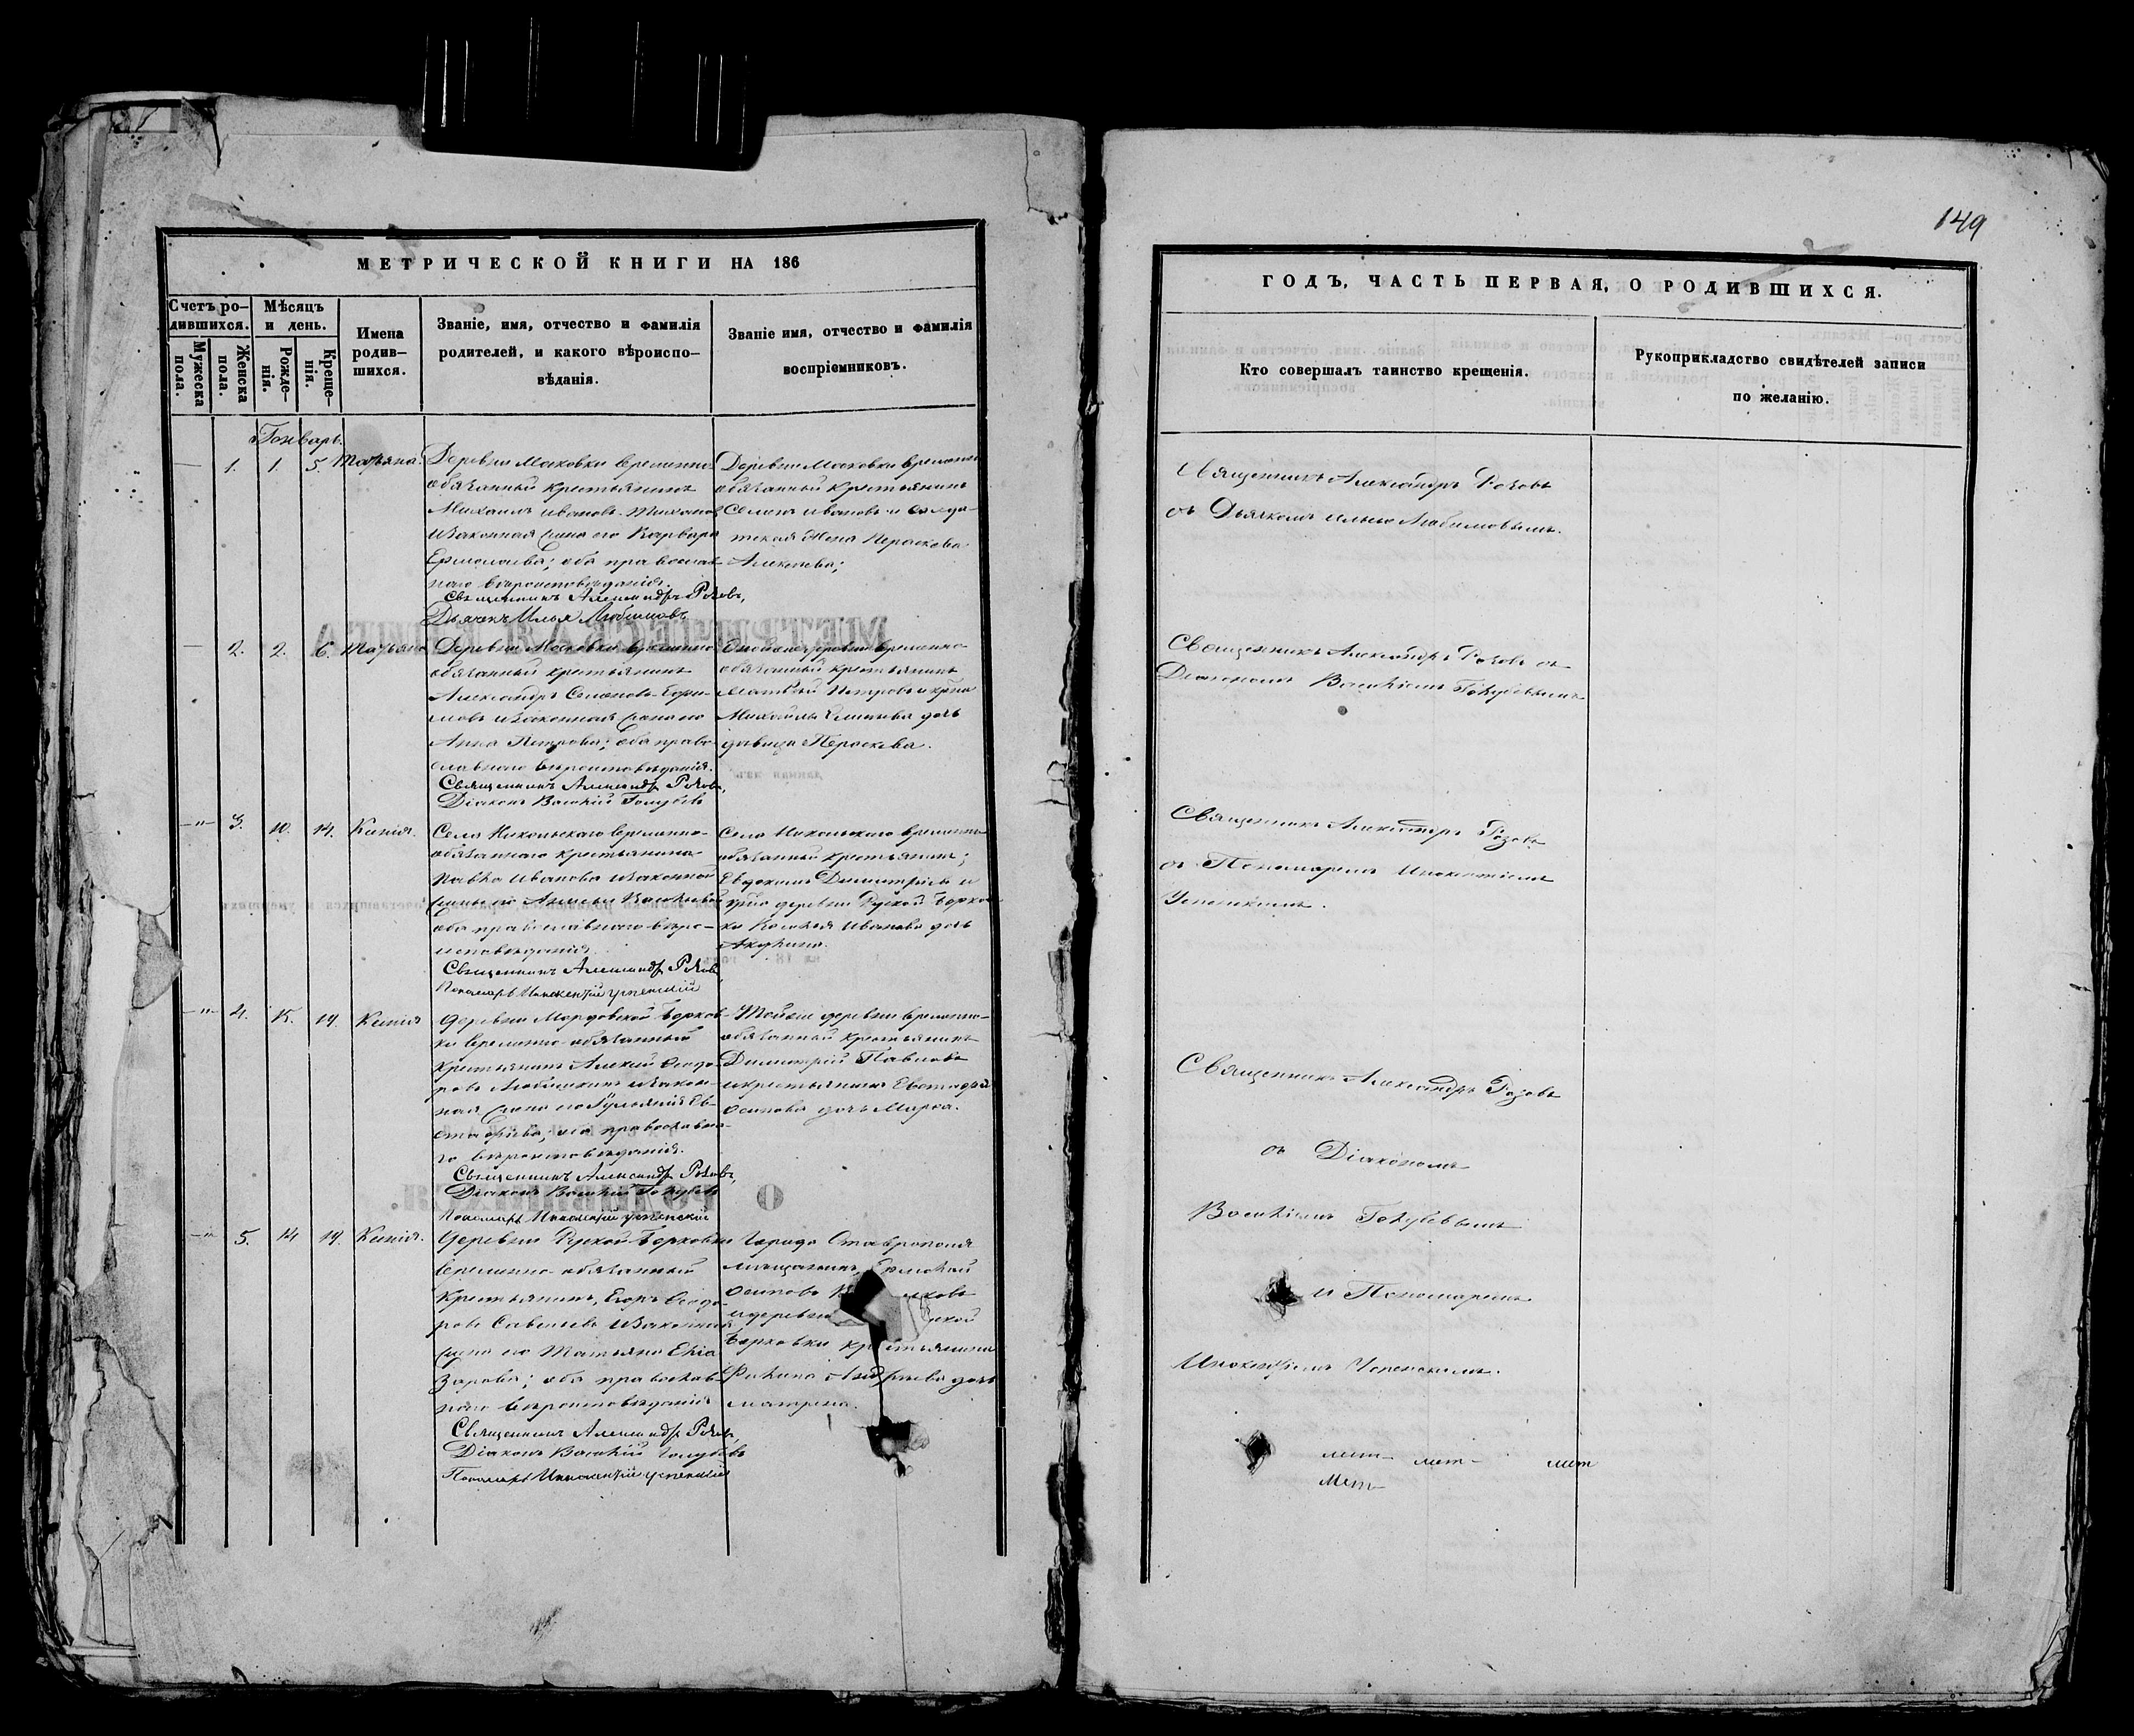 149
МЕТРИЧЕСКОЙ КНИГИ НА 186
Счетъ ро-
дившихся.
Мужеска
пола.
Женска
пола.
Мѣсяцъ
и день.
Рожде-
нія.
Креще-
нія.
Имена
родив-
шихся.
Званіе, имя, отчество и фамилія
родителей, и какого вѣроиспо-
вѣданія.
Званіе имя, отчество и фамилія
воспріемниковъ.
Январь.
1. 1. 5. Татьяна.
Деревни Московки временно
обязанный крестьянинъ
Михаилъ Ивановъ
и законная жена его Варвара
Ермолаева; оба православ
наго вѣроисповѣданія.
Священникъ Александръ Розовъ,
Дьячекъ Илья Любимовъ
Деревни Московки временно
обязанный крестьянинъ
Семенъ Ивановъ и солда-
тская жена Параскева
Алексѣева;
2. 2. 6. Татьяна
Деревни Московки временно
обязанный крестьянинъ
Александръ Семеновъ
и законная жена его
Анна Петрова; оба право
славнаго вѣроисповѣданія.
Священникъ Александръ Розовъ,
Діаконъ Василій Голубевъ
Оной же деревни временно
обязанный крестьянинъ
Матвѣй Петровъ и
Михаилы дочь
дѣвица Параскева.
3. 10. 14. Ксенія.
Села Никольскаго временно-
обязаннаго крестьянина
Павла Иванова и законной
жены его Васильевой
оба православнаго вѣро-
исповѣданія.
Священникъ Александръ Розовъ,
Пономарь Инокентій Успенскій
Села Никольскаго временно
обязанный крестьянинъ;
Евдокимъ Димитріевъ и
деревни Руской Борков-
ки Василья Иванова дочь
Акулина.
4. 15. 19. Ксенія
Деревни Мордовской Борков
ки временно-обязанный
крестьянинъ Алексій Ѳеодо-
ровъ и закон-
ная жена его Ев-
стафіева; оба православна-
го вѣроисповѣданія.
Священникъ Александръ Розовъ,
Діаконъ Василій Голубевъ
Пономарь Инокентій Успенскій
Той же деревни временно-
обязанный крестьянинъ
Димитрій Павловъ
и крестьянина Евстафія
Осипова дочь Марѳа.
5. 14 19. Ксенія.
Деревни Руской Борковки
временно-обязанный
крестьянинъ, Егоръ Ѳеодо-
ровъ Савельевъ и законная
жена его Татьяна Еліа
зарова; оба православ-
наго вѣроисповѣданія
Священникъ Александръ Розовъ,
Діаконъ Василій Голубевъ
Пономарь Инокентій Успенскій
Города Ставрополя
мещанинъ
Осиповъ
и деревни
Борковки крестьянина
Андреева дочь
Матрена.
ГОДЪ, ЧАСТЬ ПЕРВАЯ, О РОДИВШИХСЯ.
Кто совершалъ таинство крещенія.
Рукоприкладство свидѣтелей записи
по желанію.
Священникъ Александръ Розовъ
съ Дьячкомъ Ильею Любимовымъ.
Священникъ Александръ Розовъ съ
Діакономъ Василіемъ Голубевымъ
Священникъ Александръ Розовъ
съ Пономаремъ Инокентіемъ
Успенскимъ.
Священникъ Александръ Розовъ
съ Діакономъ
Василіемъ Голубевымъ
и Пономаремъ
Инокентіемъ Успенскимъ.